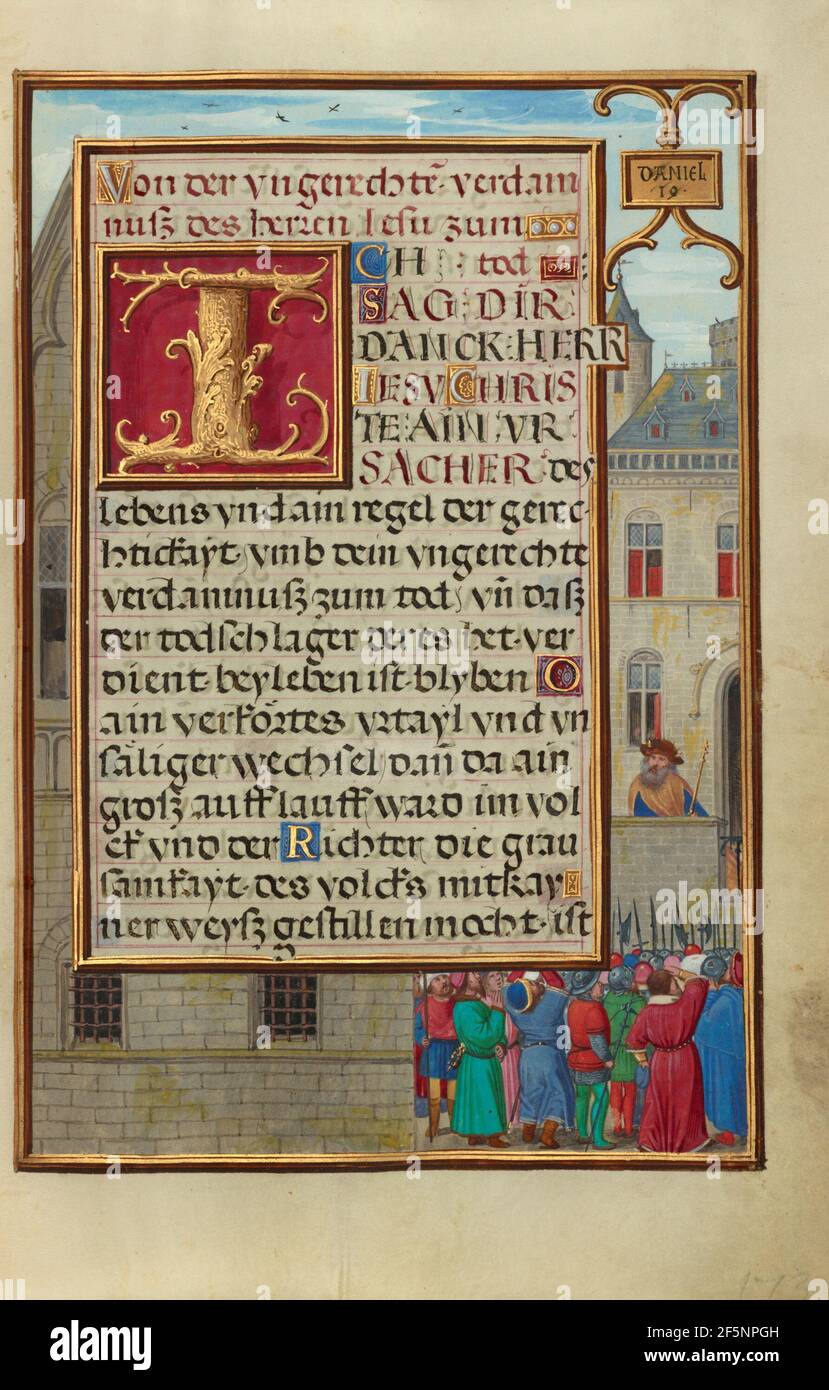 DANIEL
19
Von der vngerechtē verdam
nusz des herren Iesu zum
ICH tod
SAG DIR
DANCK HERR
IESV CHRIS
TE AIN VR
SACHER des
lebens vnd ain regel der gerec
htickayt vmb dein vngerechte
verdamnusz zum tod vn̄ dasz
der todschlager der es het ver
dient bey leben ist blyben O
ain verkörtes vrtayl vnd vn
säliger wechsel dan̄ da ain
grosz aufflauff ward im vol
ck vnd der Richter die grau
samkayt des volcks mit kay
ner weysz gestillen mocht ist
alamy
Image ID: 2F5NPGH
www.alamy.com